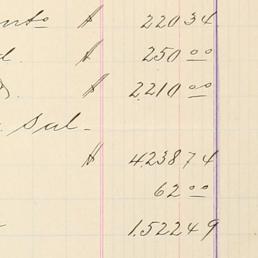 nts # 220 34
d. # 250 00
# 2210 00
Sal-
# 4238 74
62 00
1.522 49